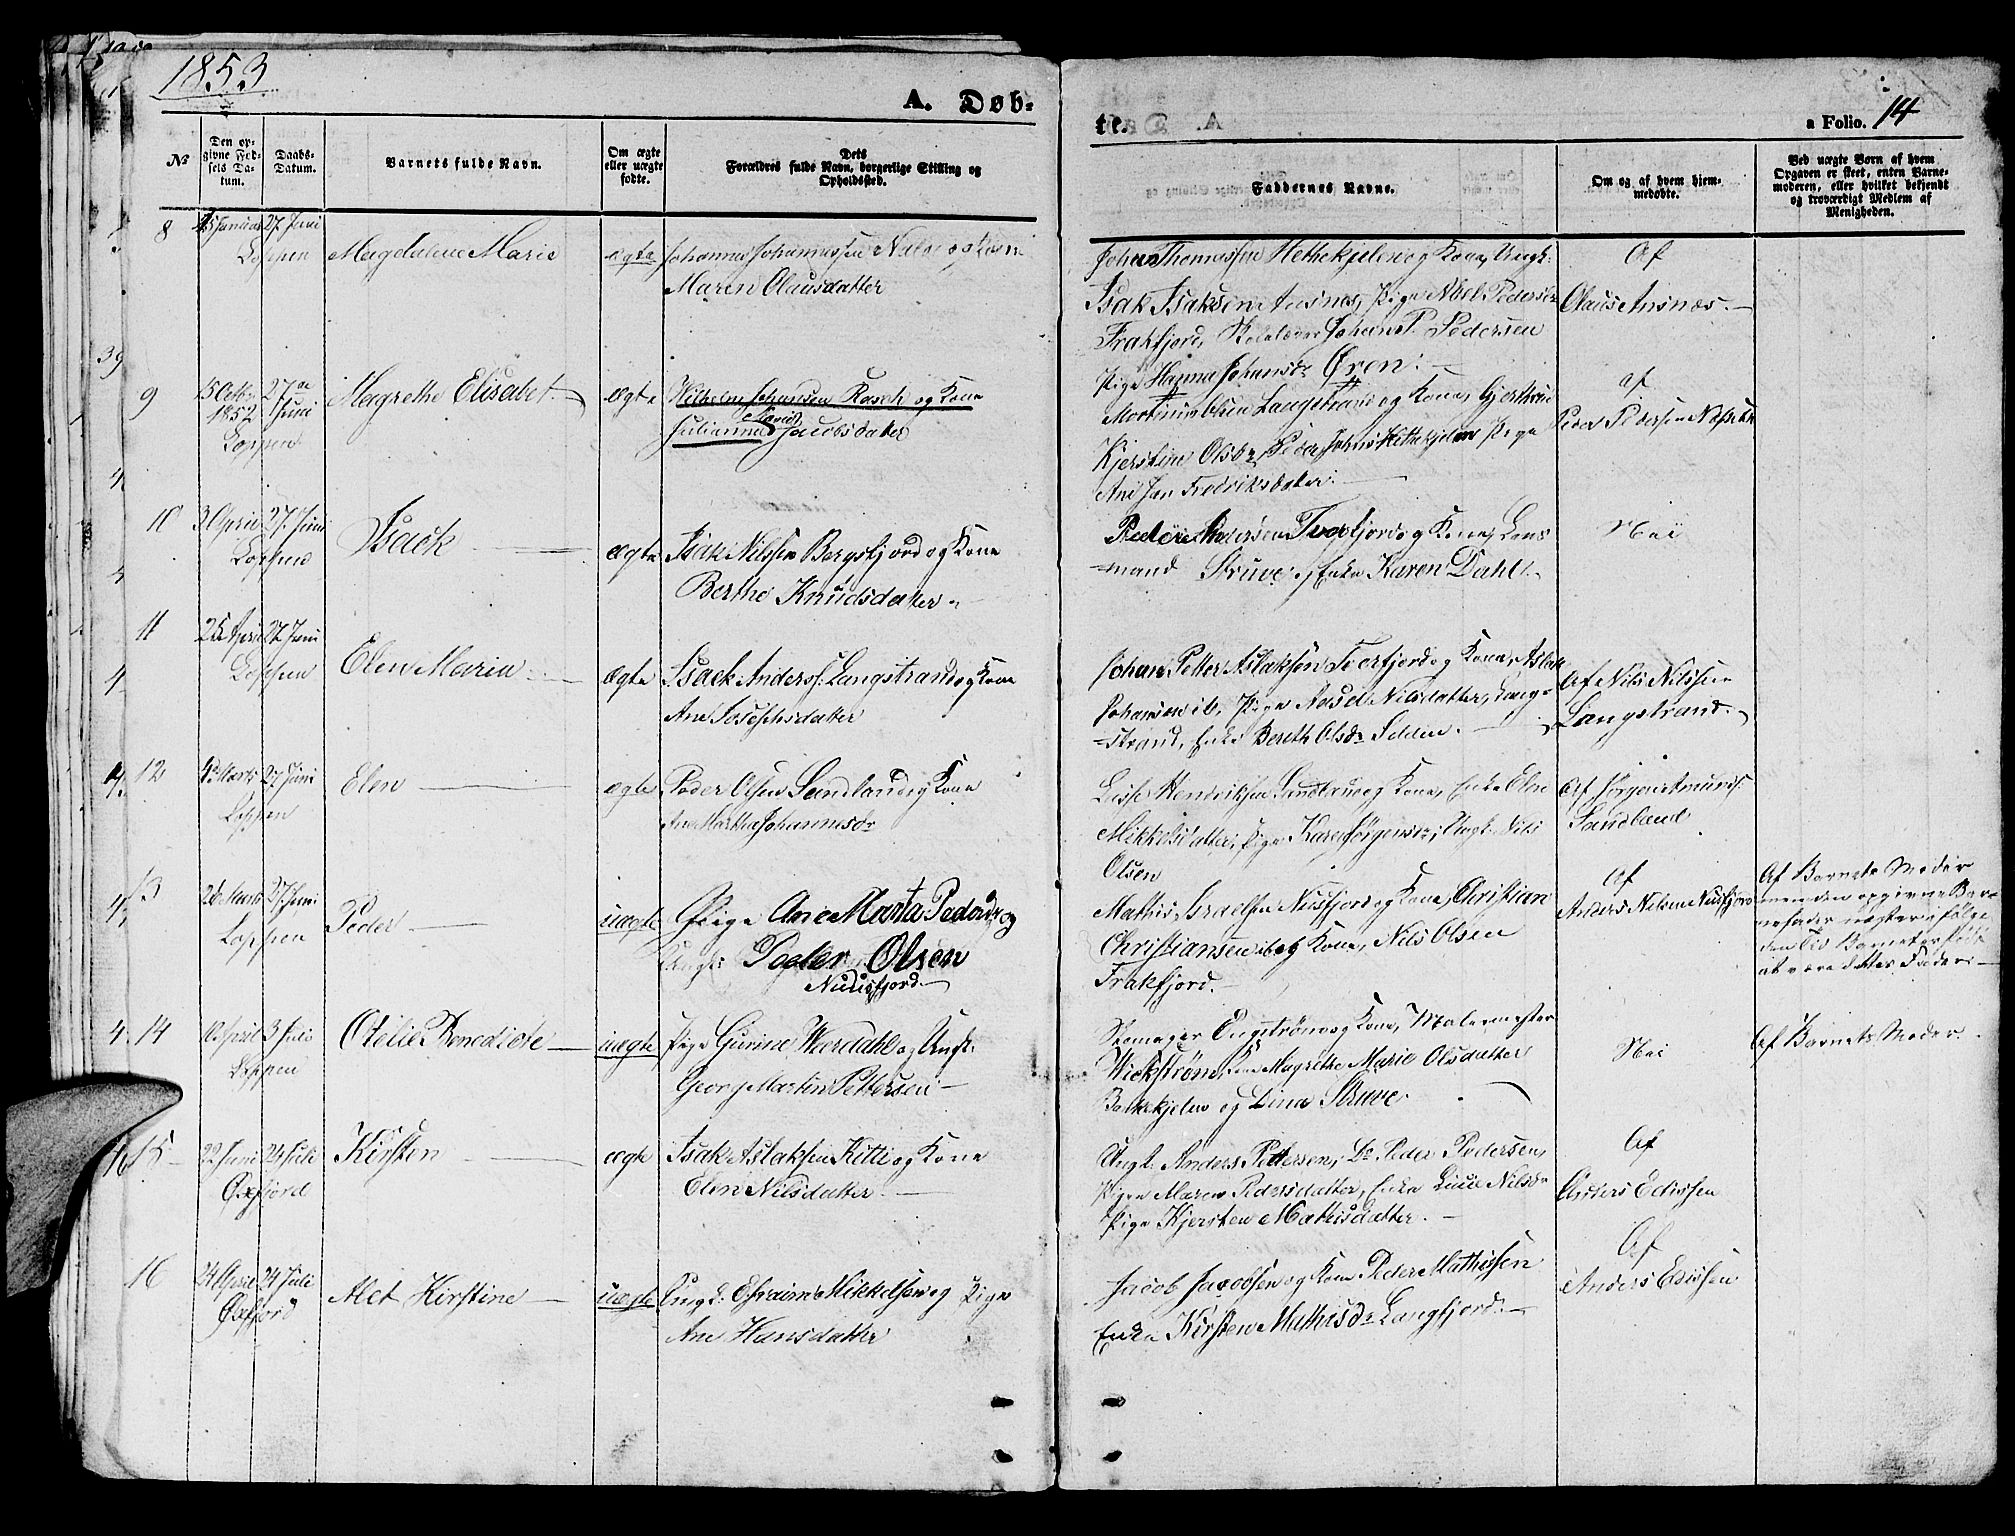 1853
A. Døb-
te.
a Folio. 14
No
Den op-
givne Fød-
sels Da-
tum.
Daabs-
Datum.
Barnets fulde Navn.
Om ægte
eller uægte
fødte.
Dets
Forældres fulde Navn, borgerlige Stilling og
Opholdssted.
Faddernes Navne.
Om og af hvem hjem-
medøbte.
Ved uægte Børn af hvem
Opgaven er skeet, enten Barne-
moderen, eller hvilket bekjendt
og troværdigt Medlem af
Menigheden.
8 27 Juni
Loppen Magdalene Marie ægte Johannes Johannessen og Kone
Maren Olausdatter
Johan Thomassen og Kone, Ungk:
Isak Isaksen Ansnæs, Pige Pedersdr
Frakfjord, Johan P. Pedersen
Pige Hanna Johansdr Øren.
Af
Olaus Ansnæs.
9 15 Octbr 27de
1852 Juni
Loppen
Magrethe Elisabet ægte Wilhelm Johansen Rasch og Kone
Marie
Julianna Jacobsdatter
Langstrand og Kone,
Kjerstine Olsdr, Peder Pige
Ane Fredriksdatter
af
Peder Pedersen
10 3 April 27. Juni
Loppen
Isack ægte Isak Nilsen Bergsfjord og Kone
Berthe Knudsdatter
Pedersen og Kone, Lens
mand Struve, Enke Karen Dahl.
Nei
11 25 April 27 Juni
Loppen
Elen Maria ægte Isack Anders: Langstrand og Kone
Ane Josephsdatter
Johan Petter Aslaksen og Kone, Aslak
Johansen ib, Pige Nilsdatter, Lang-
strand, Enke Bereth Olsdr
Af Nils Nilssen
Langstrand.
12 Marts 27 Juni
Loppen
Elen ægte Peder Olsen Sandland og Kone
Ane Martha Johannesdr
Hendriksen Sandland og Kone, Enke Elen
Mikkelsdatter, Pige Karen Jørgensdr, Ungk. Nils
Olsen
Af Jørgen Amunds:
Sandland
13 26 Marts 27 Juni
Loppen
Peder uægte Pige Ane Marta Pedersdr og
Ungk: Peder Olsen
Nuusfjord
Mathis Israelsen Nusfjord og Kone, Christian
Christiansen ib og Kone, Nils Olsen
Frakfjord.
Af
Anders Nilsen Nusfjord
Af Barnets Moder
men den opgivne Bar-
nefader nægter ifølge
den Tid Barnet er født
at være dettes Fader.
14 10 April 3 Juli
Loppen
Otelie Benedicte uægte Pige Gurine Wardahl og Ungk:
Georg Martin Pettersen
Skomager Engstrøm og Kone, Malermester
Wickstrøm, Magrethe Marie Olsdatter
og Lina Struve.
Nei
Af Barnets Moder.
15 22 Juni 24 Juli
Øxfjord
Kirsten ægte Isak Aslaksen Kitti og Kone
Elen Nilsdatter.
Ungk. Anders Pettersen, Do Peder Pedersen,
Pigen Maren Pedersdatter, Enke Lucie Nilsdr
Pige Kjersten Mathisdatter.
Af
Anders Edissen
16 24 April 24 Juli
Øxfjord
Alet Kirstine uægte Ungk: Efraim Mikkelsen og Pige
Ane Hansdatter
Jacob Jacobsen og Kone Peder Mathissen
Enke Kirsten Mathisdr Langfjord.
Af
Anders Edissen